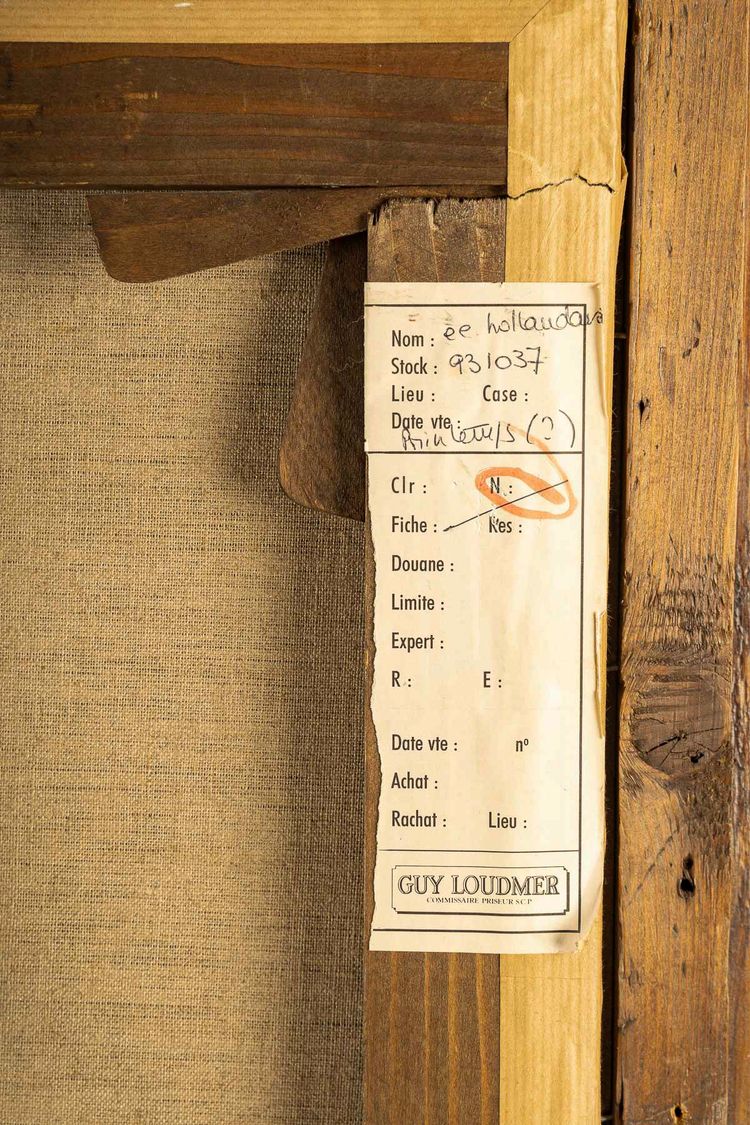 Nom : ée hollandais
Stock : 931037
Lieu : Case :
Date vte :
Printemps (?)
Clr : N :
Fiche : Res :
Douane :
Limite :
Expert :
R : E :
Date vte : nº
Achat :
Rachat : Lieu :
GUY LOUDMER
COMMISSAIRE PRISEUR S.C.P